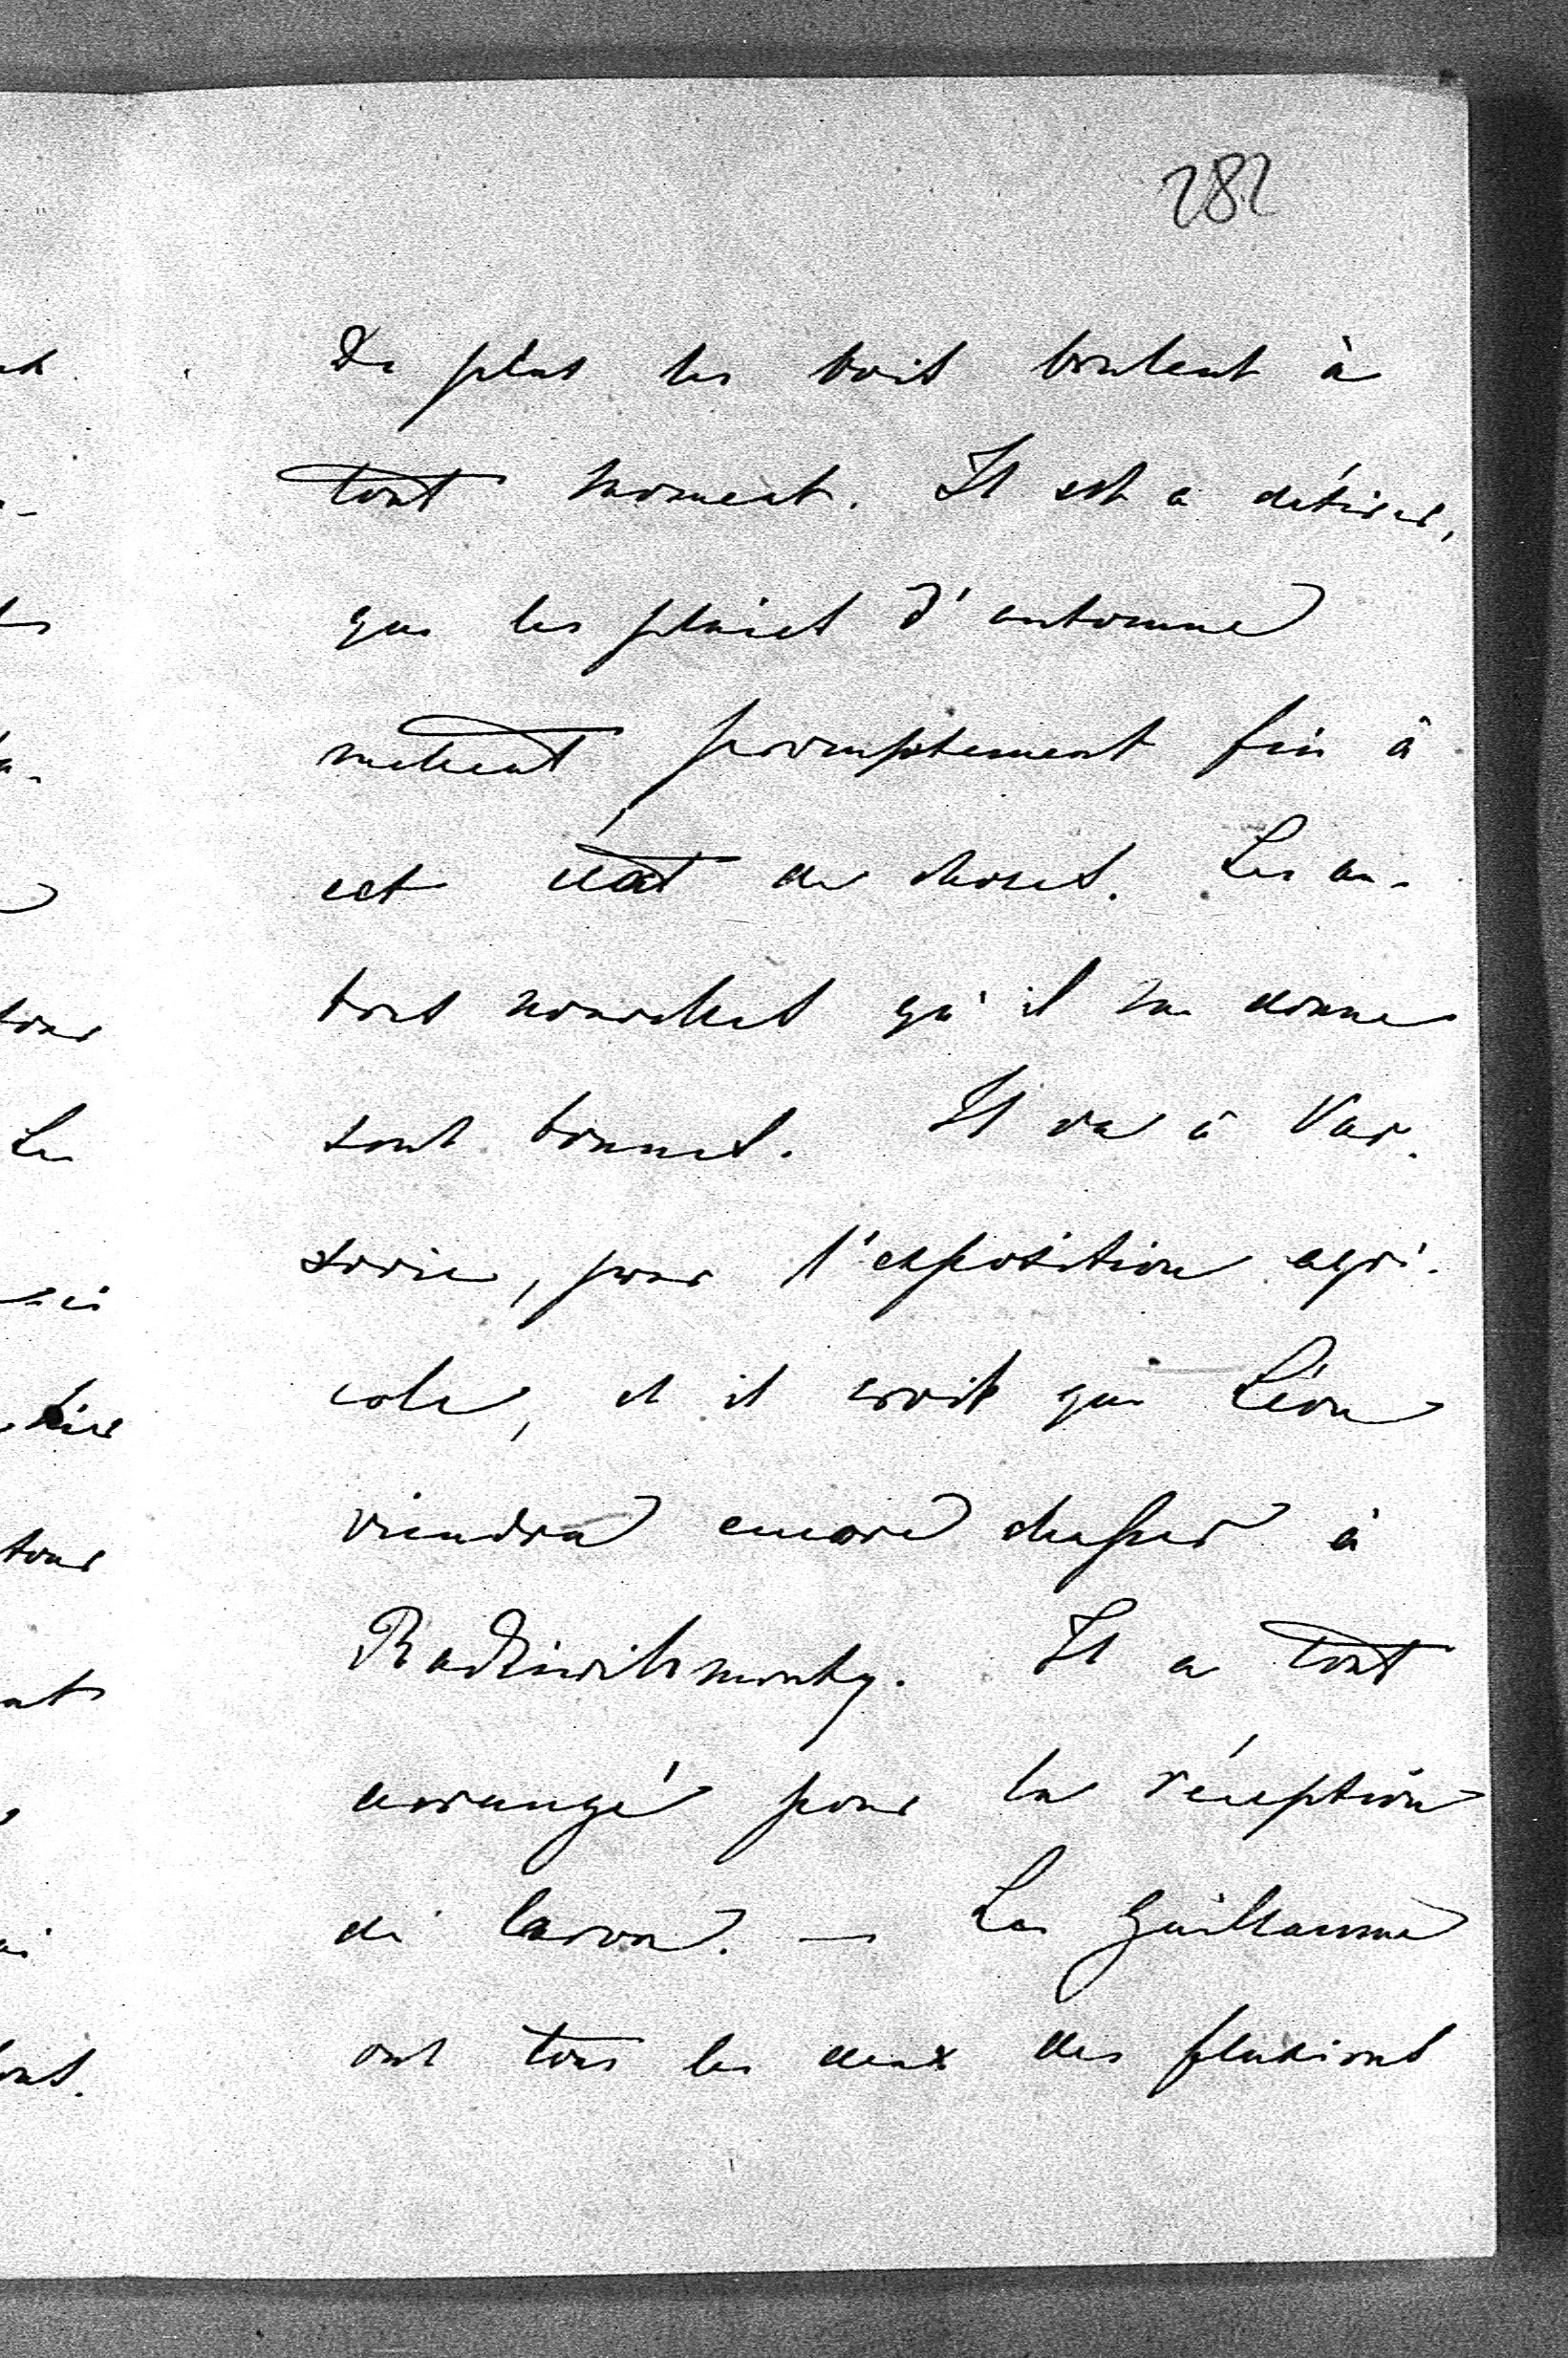 282
De plus les bois brulent à
tout moment. Il est a désirer,
que les pluies d'automne
mettent promptement fin à
cet état de choses. Les au-
tres nouvelles qu'il me donne
sont bonnes. Il va à Var-
sovie, pour l'exposition agri-
cole, et il croit que Léon
viendra encore chasser à
Radziwilimonty. Il a tout
arrangé pour la réception
de . — Les Guillaume
ont tous les deux des fluxions